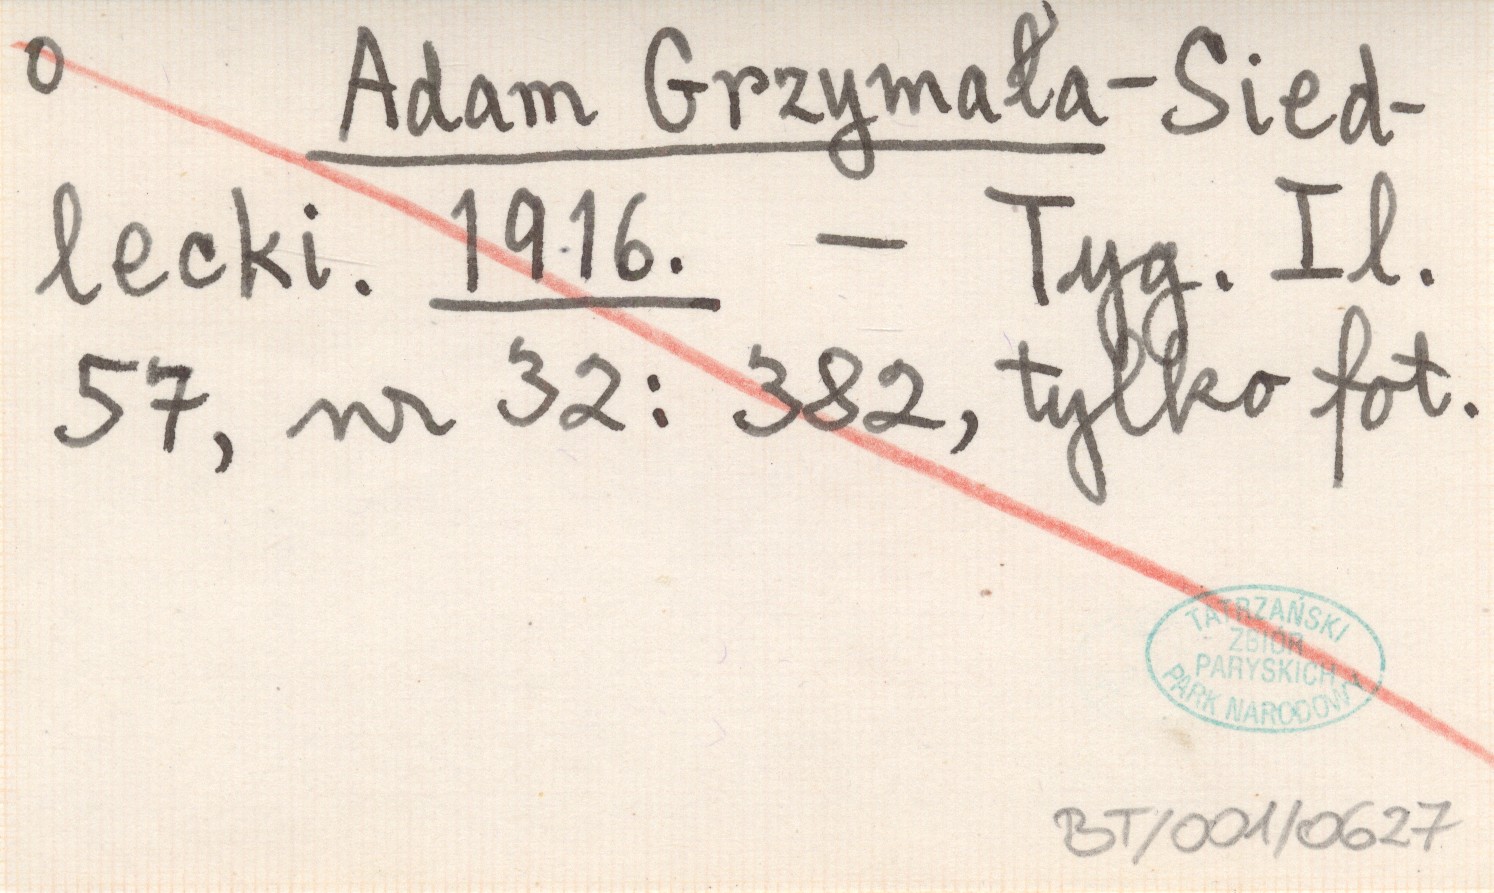 0 Adam Grzymała-Sied-
lecki. 1916. — Tyg. Il.
57, nr 32: 382, tylko fot.
TATRZAŃSKI
ZBIÓR
PARYSKICH
PARK NARODOWY
BT/001/0627